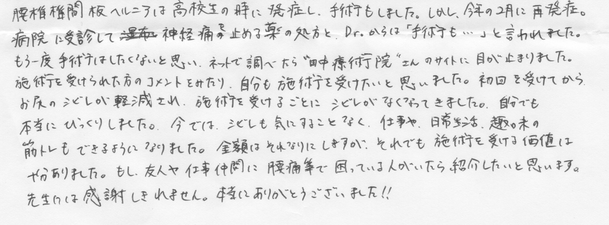 腰椎椎間板ヘルニアは高校生の時に発症し、手術もしました。しかし、今年の2月に再発症。
病院に受診して神経痛を止める薬の処方と、Dr.からは「手術も…」と言われました。
もう一度手術はしたくないと思い、ネットで調べたら"田中療術院"さんのサイトに目が止まりました。
施術を受けられた方のコメントをみたり、自分も施術を受けたいと思いました。初回を受けてから
お尻のシビレが軽減され、施術を受けるごとにシビレがなくなってきました。自分でも
本当にびっくりしました。今では、シビレも気にすることなく、仕事や、日常生活、趣味の
筋トレもできるようになりました。金額はそれなりにしますが、それでも施術を受ける価値は
やはりありました。もし、友人や仕事仲間に腰痛等で困っている人がいたら紹介したいと思います。
先生には感謝しきれません。本当にありがとうございました!!